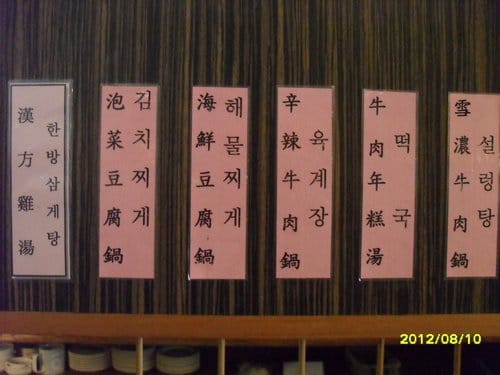 漢方雞湯
한방삼게탕
泡菜豆腐鍋
김치찌게
海鮮豆腐鍋
해물찌게
辛辣牛肉鍋
육계장
牛肉年糕湯
떡국
雪濃牛肉鍋
설렁탕
2012/08/10